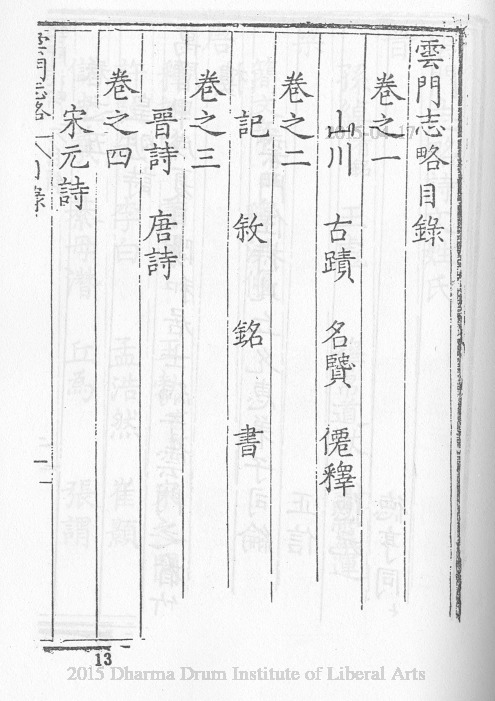 雲門志略目錄
卷之一
山川 古蹟 名賢 僊釋
卷之二
記 敘 銘 書
卷之三
晉詩 唐詩
卷之四
宋元詩
雲門志略 目錄 一
13
2015 Dharma Drum Institute of Liberal Arts